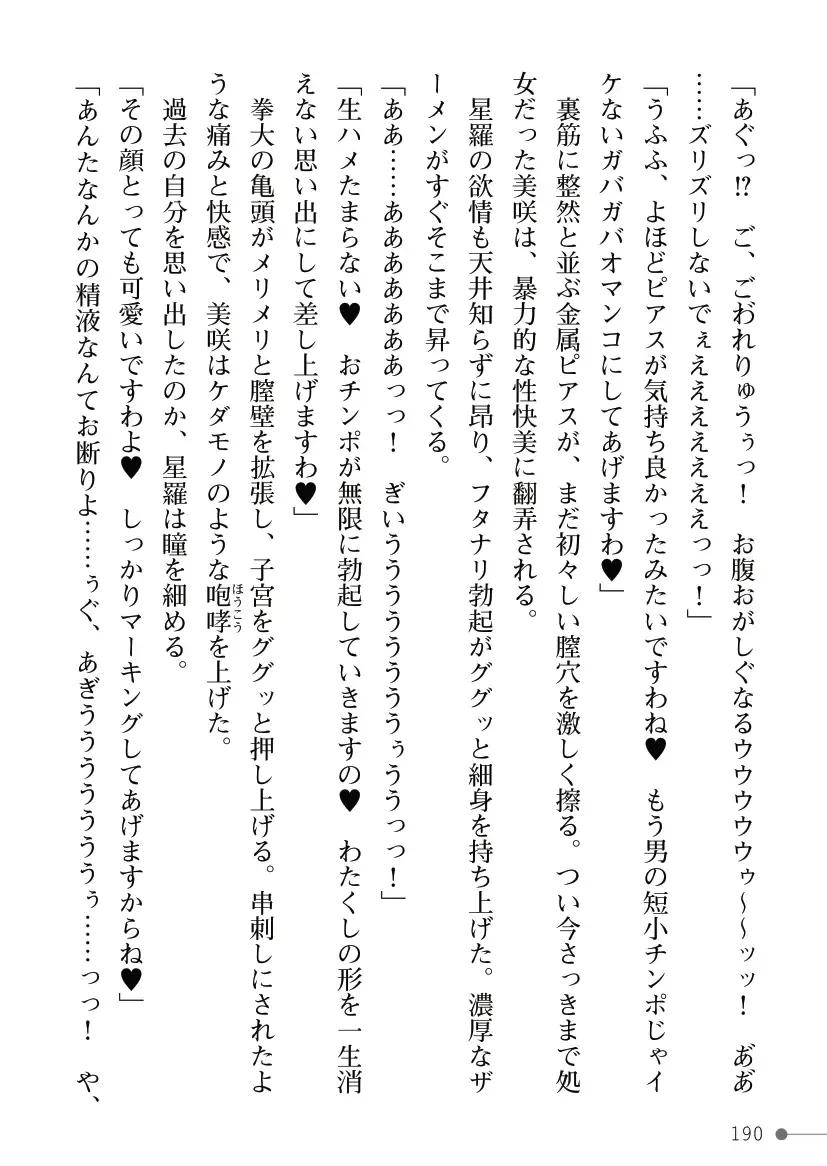 「あぐっ!?　ご、ごおれりゅうぅっ！　お腹おがしぐなるウウウウウゥ～～ッッ！　あ゙あ゙
……ズリズリしないでぇええええええええっっ！」
「うふふ、よほどピアスが気持ち良かったみたいですわね♥　もう男の短小チンポじゃイ
ケないガバガバオマンコにしてあげますわ♥」
　裏筋に整然と並ぶ金属ピアスが、まだ初々しい膣穴を激しく擦る。つい今さっきまで処
女だった美咲は、暴力的な性快美に翻弄される。
　星羅の欲情も天井知らずに昂り、フタナリ勃起がググッと細身を持ち上げた。濃厚なザ
ーメンがすぐそこまで昇ってくる。
「ああ……ああああああああっっ！　ぎいううううううううぅううっっ！」
「生ハメたまらない♥　おチンポが無限に勃起していきますの♥　わたくしの形を一生消
えない思い出にして差し上げますわ♥」
　拳大の亀頭がメリメリと膣壁を拡張し、子宮をググッと押し上げる。串刺しにされたよ
うな痛みと快感で、美咲はケダモノのような咆哮を上げた。
ほうこう
　過去の自分を思い出したのか、星羅は瞳を細める。
「その顔とっても可愛いですわよ♥　しっかりマーキングしてあげますからね♥」
「あんたなんかの精液なんてお断りよ……ぅぐ、あぎうううううううぅ……っっ！　や、
190